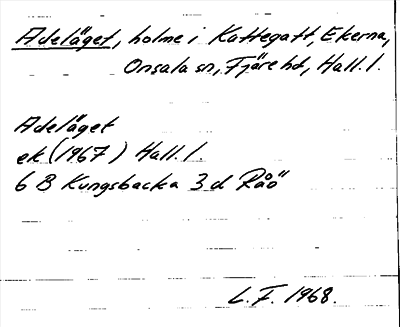 Adeläget, holme i Kattegatt, Ekerna,
Onsala sn, Fjäre hd, Hall. l.
Adeläget
ek (1967) Hall. l.
6 B Kungsbacka 3 d Råö
L. F. 1968.